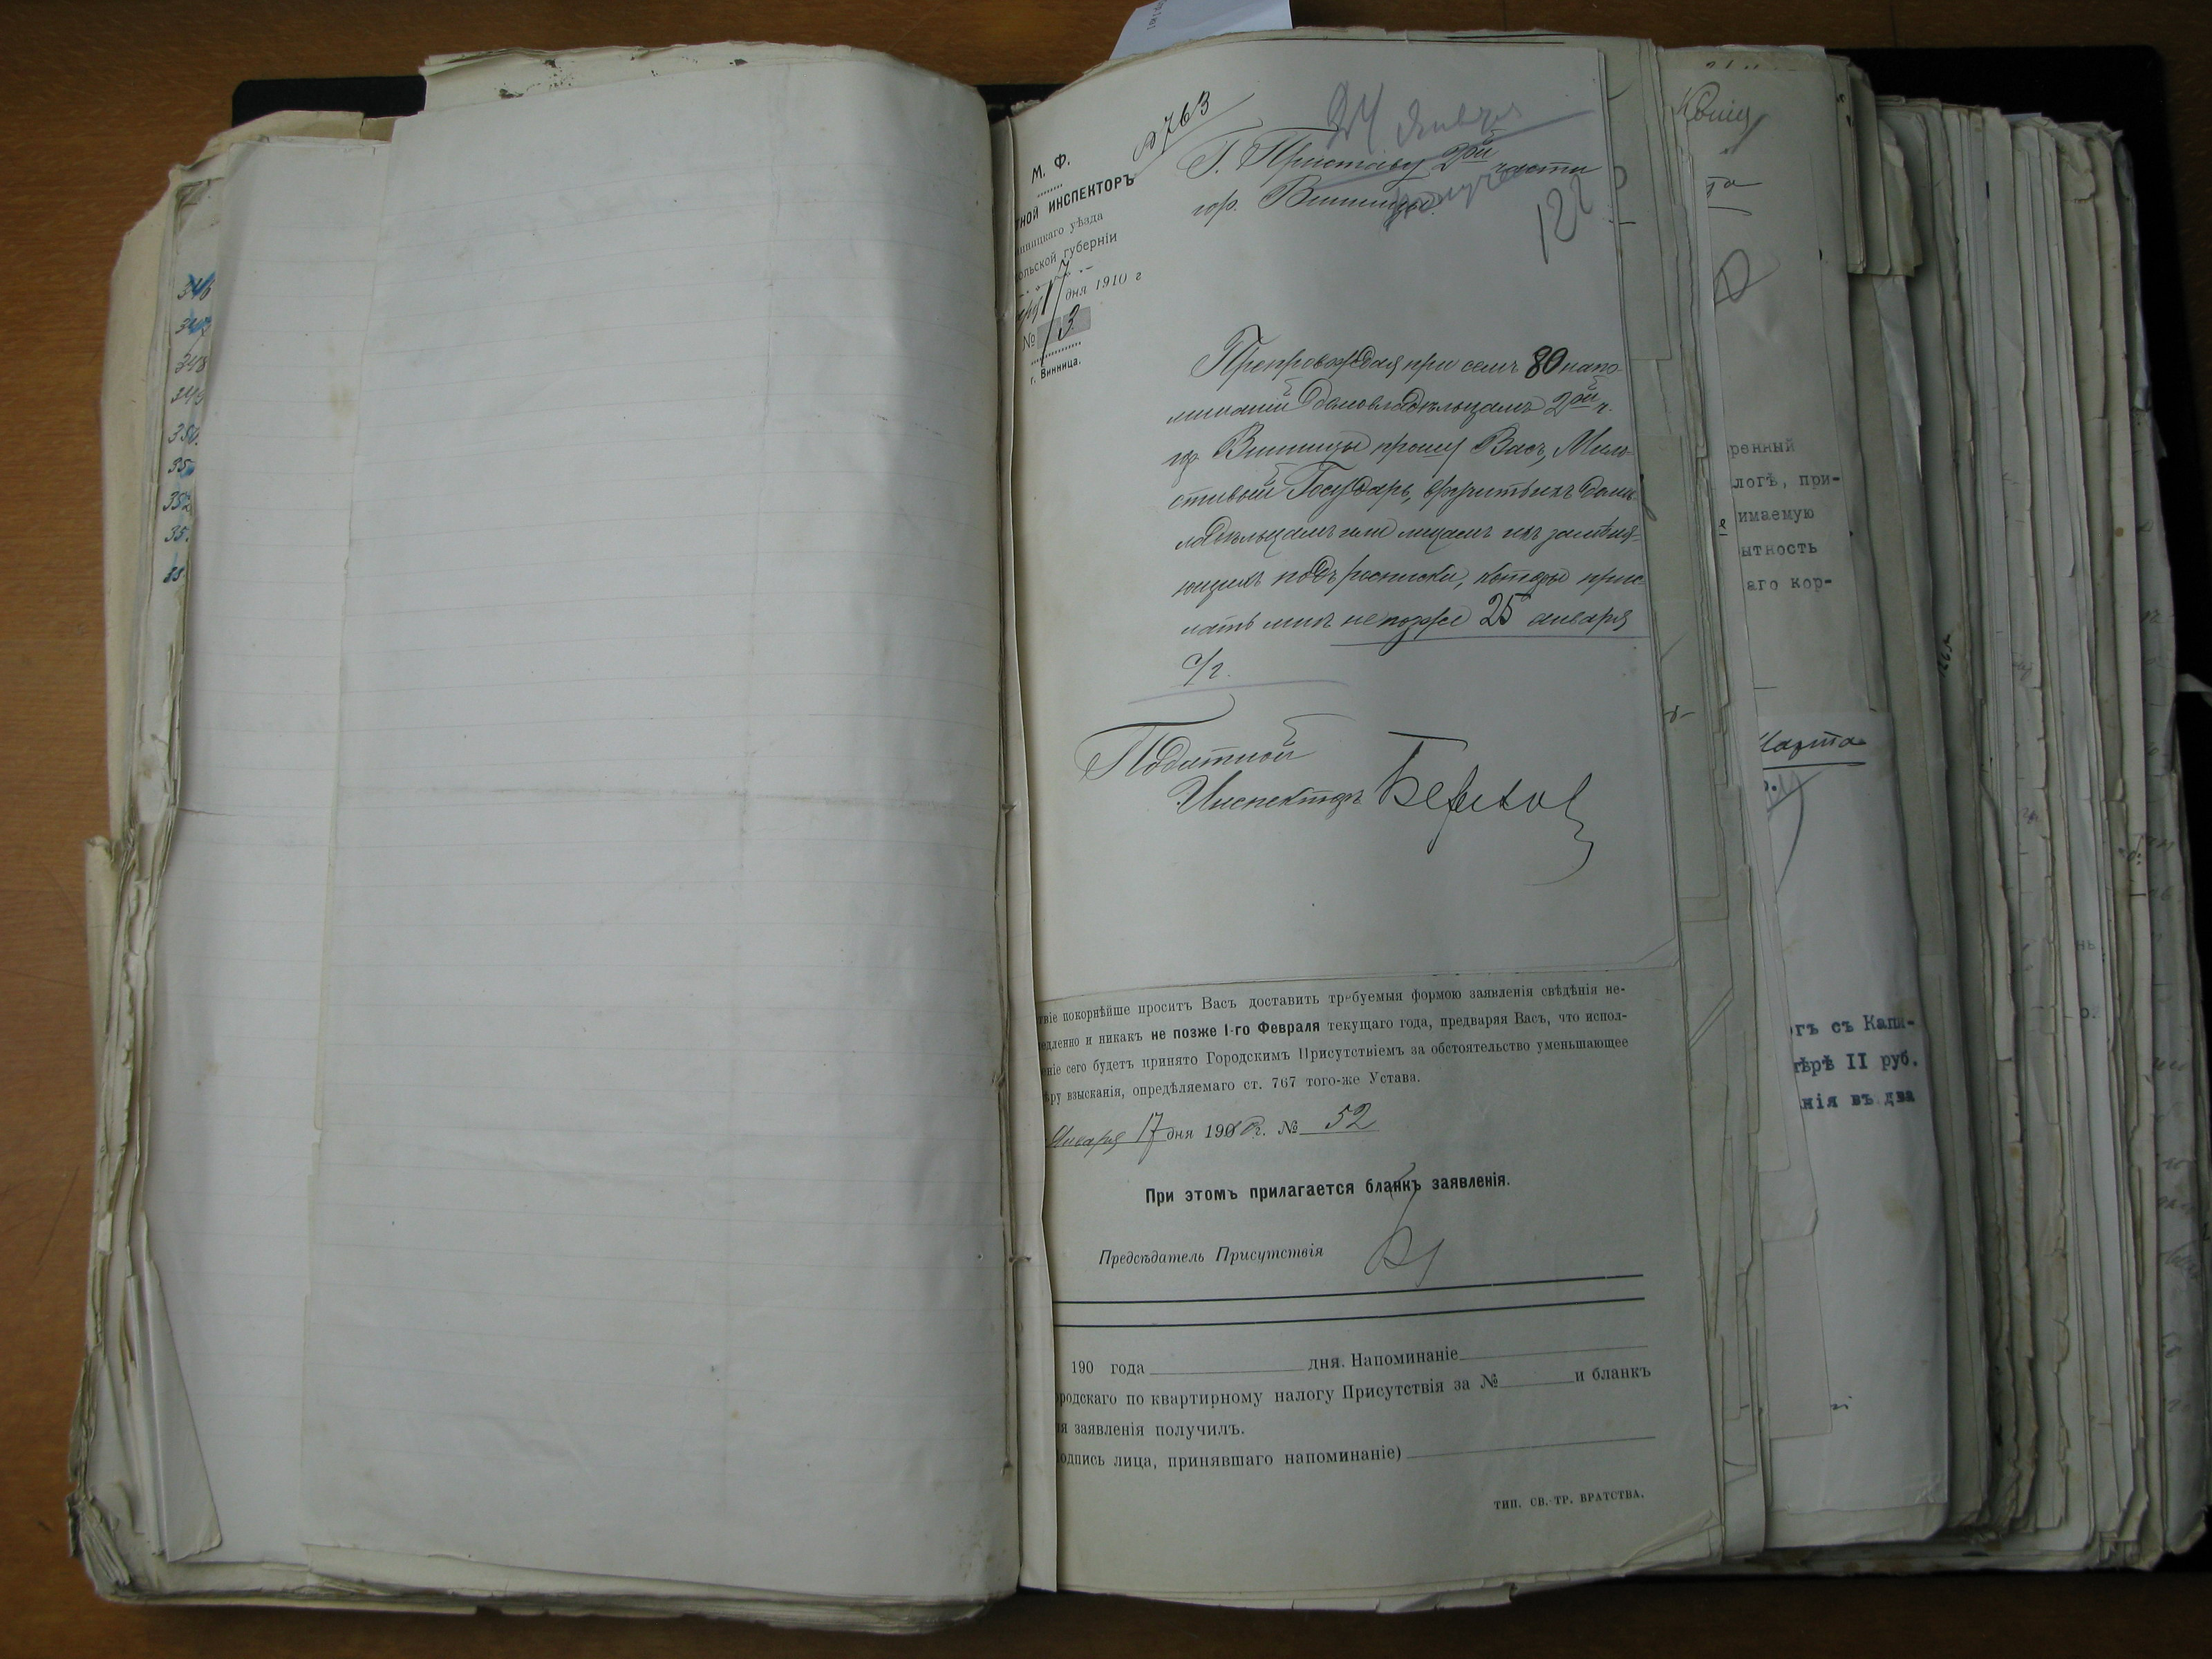 346
348
349
350.
352
763
М. Ф.
тной ИНСПЕКТОРЪ
нницкаго уѣзда
ольской губерніи
17 дня 1910 г
№ 13
г. Винница.
24 Января
Г. Приставу 2ой части
гор. Винницы.
122
Препровождая при семъ 80 напо-
минаній домовладѣльцамъ 2ой ч.
гор. Винницы прошу Васъ, Мило-
стивый Государь, вручить ихъ домов-
ладѣльцамъ или лицамъ ихъ замѣня-
ющихъ подъ росписки, которые прис-
лать мнѣ не позже 25 января
с/г.
Податной
Инспекторъ
твіе покорнѣйше проситъ Васъ доставить требуемыя формою заявленія свѣдѣнія не-
едленно и никакъ не позже 1-го Февраля текущаго года, предваряя Васъ, что испол-
еніе сего будетъ принято Городскимъ Присутствіемъ за обстоятельство уменьшающее
ѣру взысканія, опредѣляемаго ст. 767 того-же Устава.
Января 17 дня 1910 г. № 52
При этомъ прилагается бланкъ заявленія.
Предсѣдатель Присутствія
190 года дня. Напоминаніе
ородскаго по квартирному налогу Присутствія за № и бланкъ
я заявленія получилъ.
одпись лица, принявшаго напоминаніе)
ТИП. СВ. ТР. БРАТСТВА.
ренный
логѣ, при-
имаемую
ытность
аго кор-
Марта
огъ съ Капи-
мѣрѣ II руб.
нія въ два